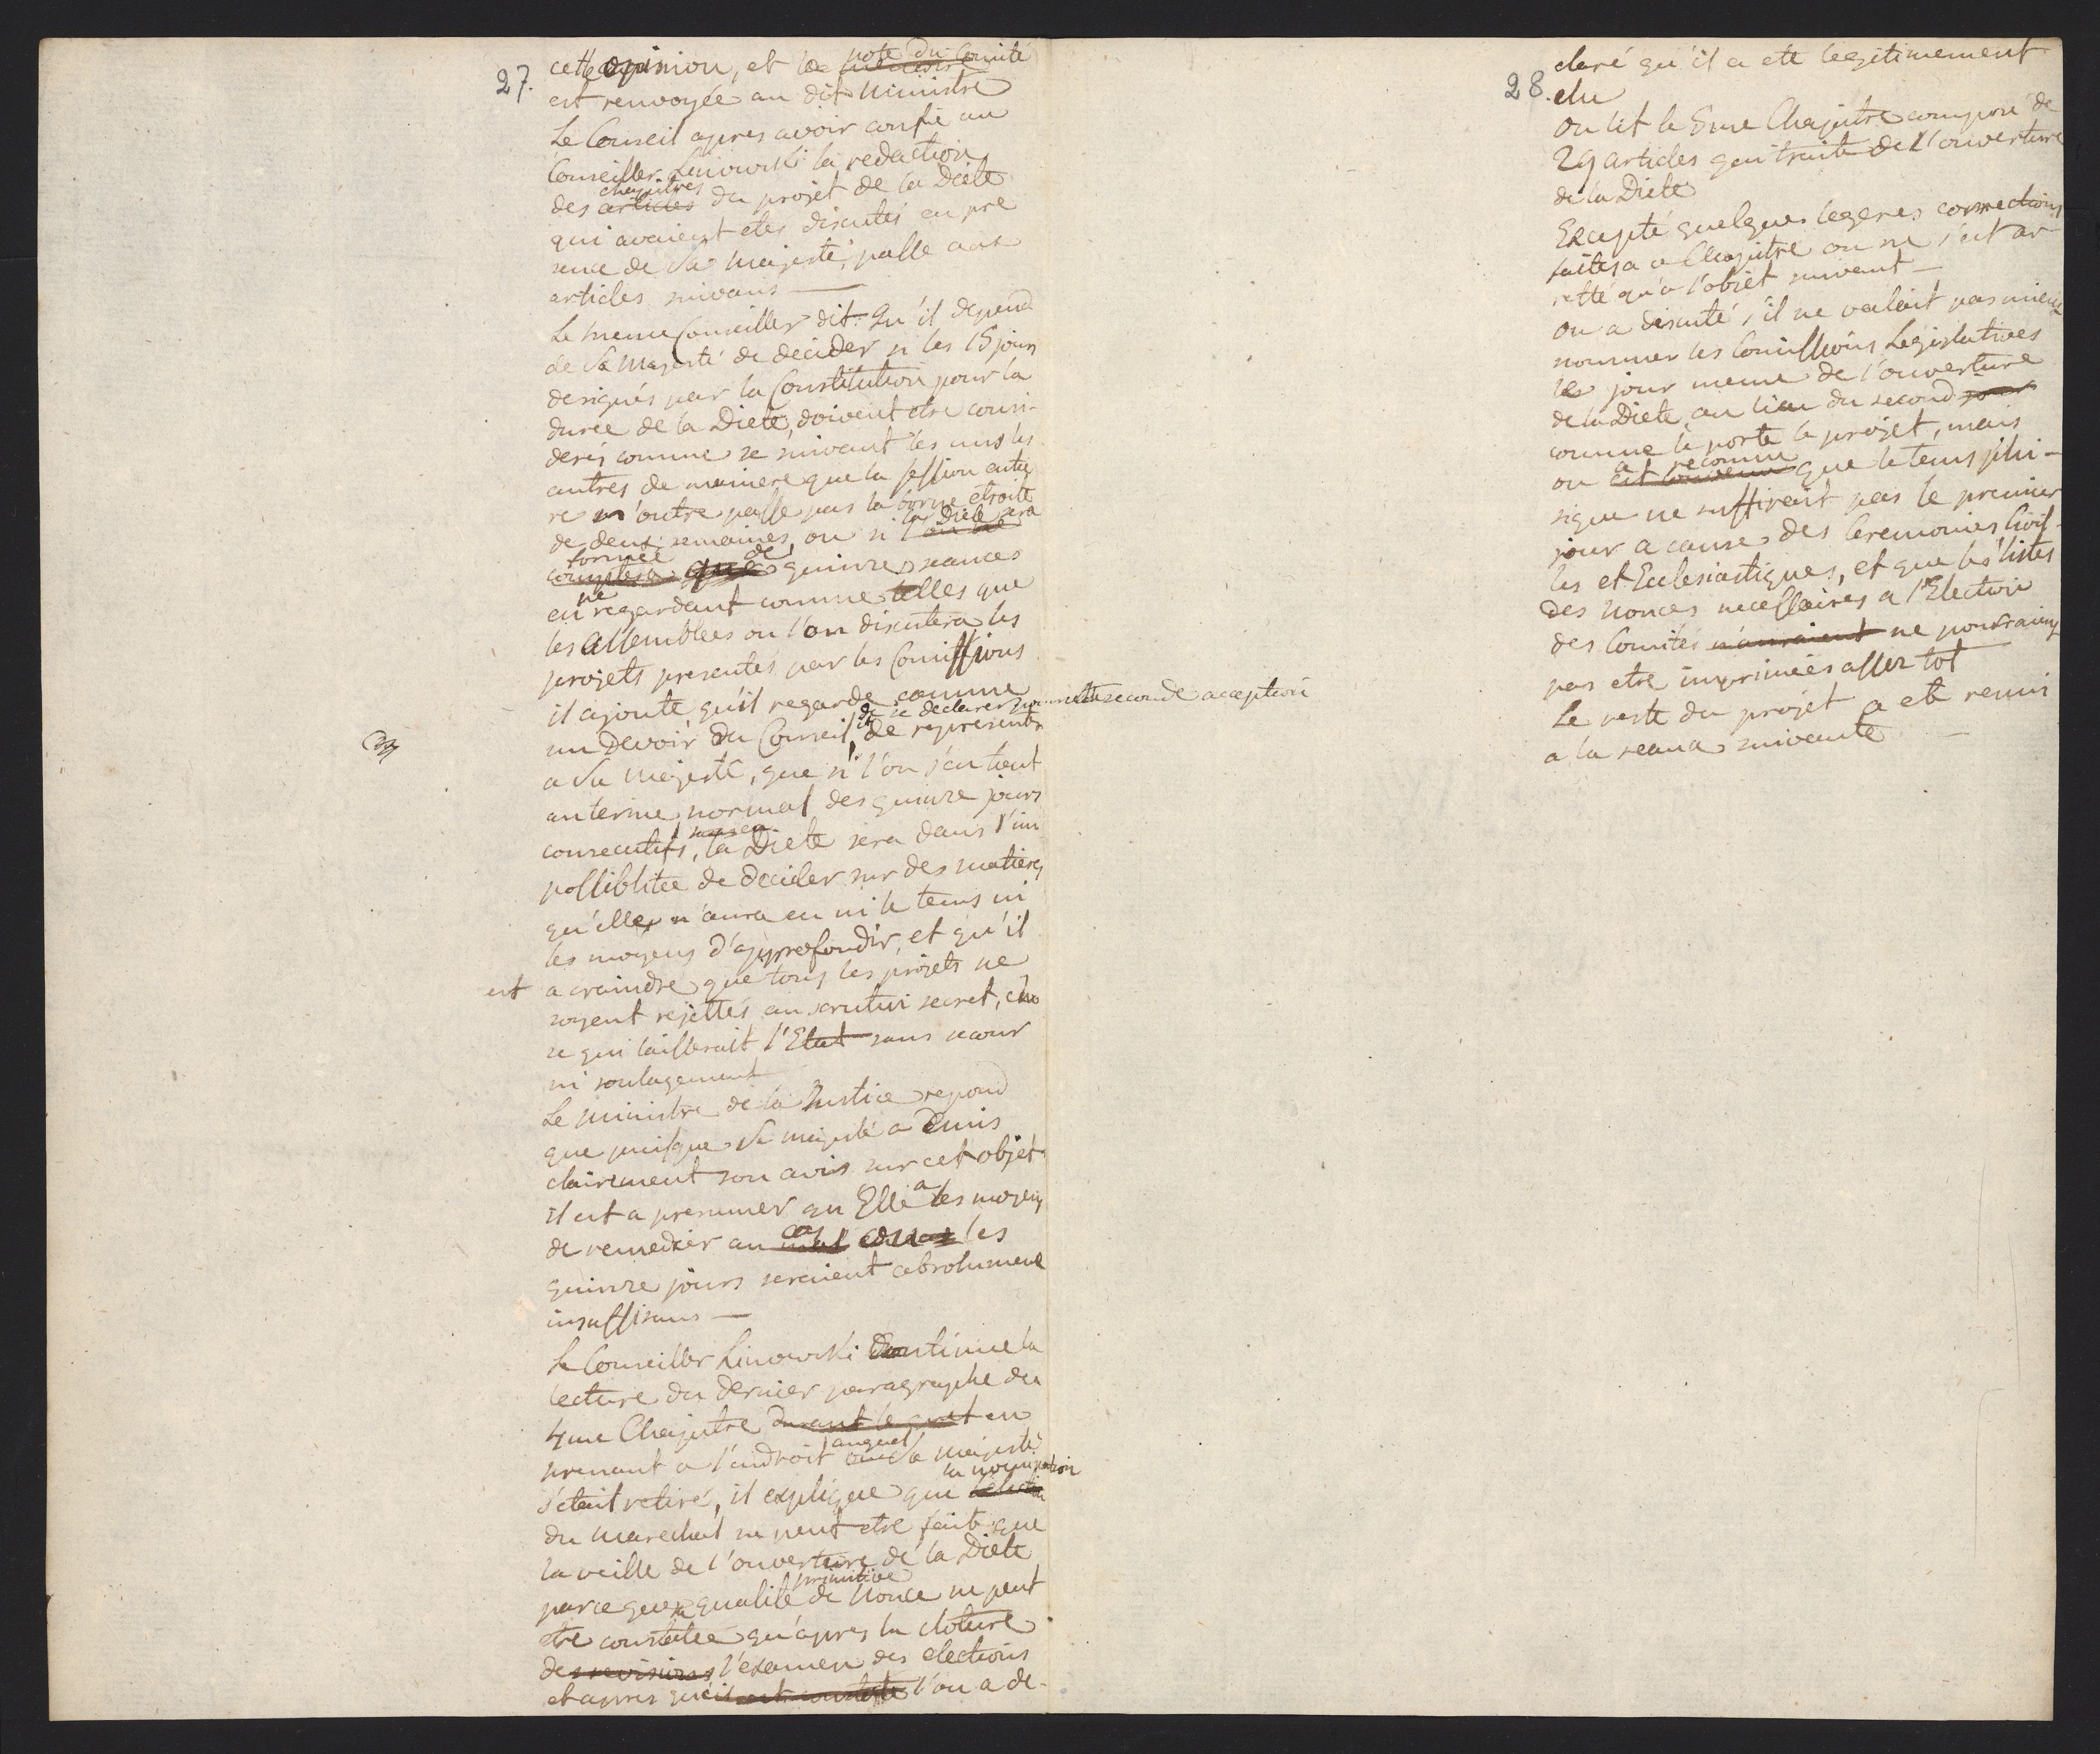 27.
cette opinion, et la note du Comité
est renvoyée au dit Ministre
Le Conseil apres avoir confié au
Conseiller Linowski la redaction
chapitres
des articles du projet de la Diete
qui avaient etes discutés en pre
sence de Sa Majesté, passe aux
articles suivans —
Le meme Conseiller dit: Qu'il depend
de Sa Majesté de decider si les 15 jours
designés par la Constitution pour la
durée de la Diete, doivent etre consi-
derés comme se suivant les uns les
autres de maniere que la session entie
re n'outre passe pas la borne etroite
de deux semaines, ou si la Diete sera
formée de
comptera que quinze seances
ne
en regardant comme telles que
les Assemblées ou l'on discutera les
projets presentés par les Comissions
il ajoute qu'il regarde comme
de se declarer pour cette seconde acception
un Devoir du Conseil et de representer
a Sa Majesté, que si l'on s'en tient
au terme normal des quinze jours
consecutifs, la Diete sera dans l'im
possiblitee de decider sur des matieres
qu'elle n'aura eu ni le tems ni
les moyens d'approfondir, et qu'il
est a craindre que tous les projets ne
soyent rejettés au scrutin secret,
ce qui laisserait l'Etat sans secour
ni soulagement
Le Ministre de la Justice repond
que puisque Sa Majesté a Emis
clairement son avis sur cet objet
il est a presumer qu Elle a les moyens
de remedier au cas les
quinze jours seraient absolument
insuffisans —
Le Conseiller Linowski Continue la
lecture du dernier paragraphe du
4me Chapitre durant lequel en
auquel
prenant a l'endroit Sa Majesté
la nomination
s'etait retiré, il explique que l'election
du Marechal ne peut etre fait que
la veille de l'ouverture de la Diete
primitive
parceque sa qualité de Nonce ne peut
etre constatée qu'apres la cloture
des revisions l'examen des elections
et apres qu'il est constaté l'on a de-
28.
claré qu'il a eté legitimement
elu
On lit le 5me Chapitre composé de
29 articles qui traite de l'ouverture
de la Diete
Excepté quelques legeres corrections
faites a ce Chapitre on ne s'est ar
retté qu'a l'objet suivant —
On a discuté s'il ne valait pas mieux
nommer les Comissions Législatives
le jour meme de l'ouverture
de la Diete au lieu du second jour
comme le porte le projet, mais
a reconnu
on est convenu que le tems phi-
sique ne suffirait pas le premier
jour a cause des Ceremonies Civi-
les et Ecclesiastiques, et que les listes
des Nonces necessaires a l'Election
des Comités n'auraient ne pourraient
pas etre imprimées assez tot
Le reste du projet a eté remis
a la seance suivante —